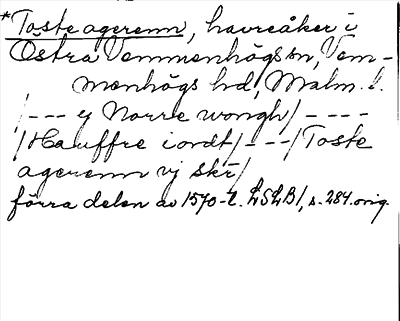 *Toste agerenn, havreåker i
Östra Vemmenhögs sn, Vem-
menhögs hd, Malm. l.
/--- y Norre wongh/----
/Hauffre iordt/---/Toste
agerenn vj skr/
förra delen av 1570-t. LSLB1, s. 284. orig.